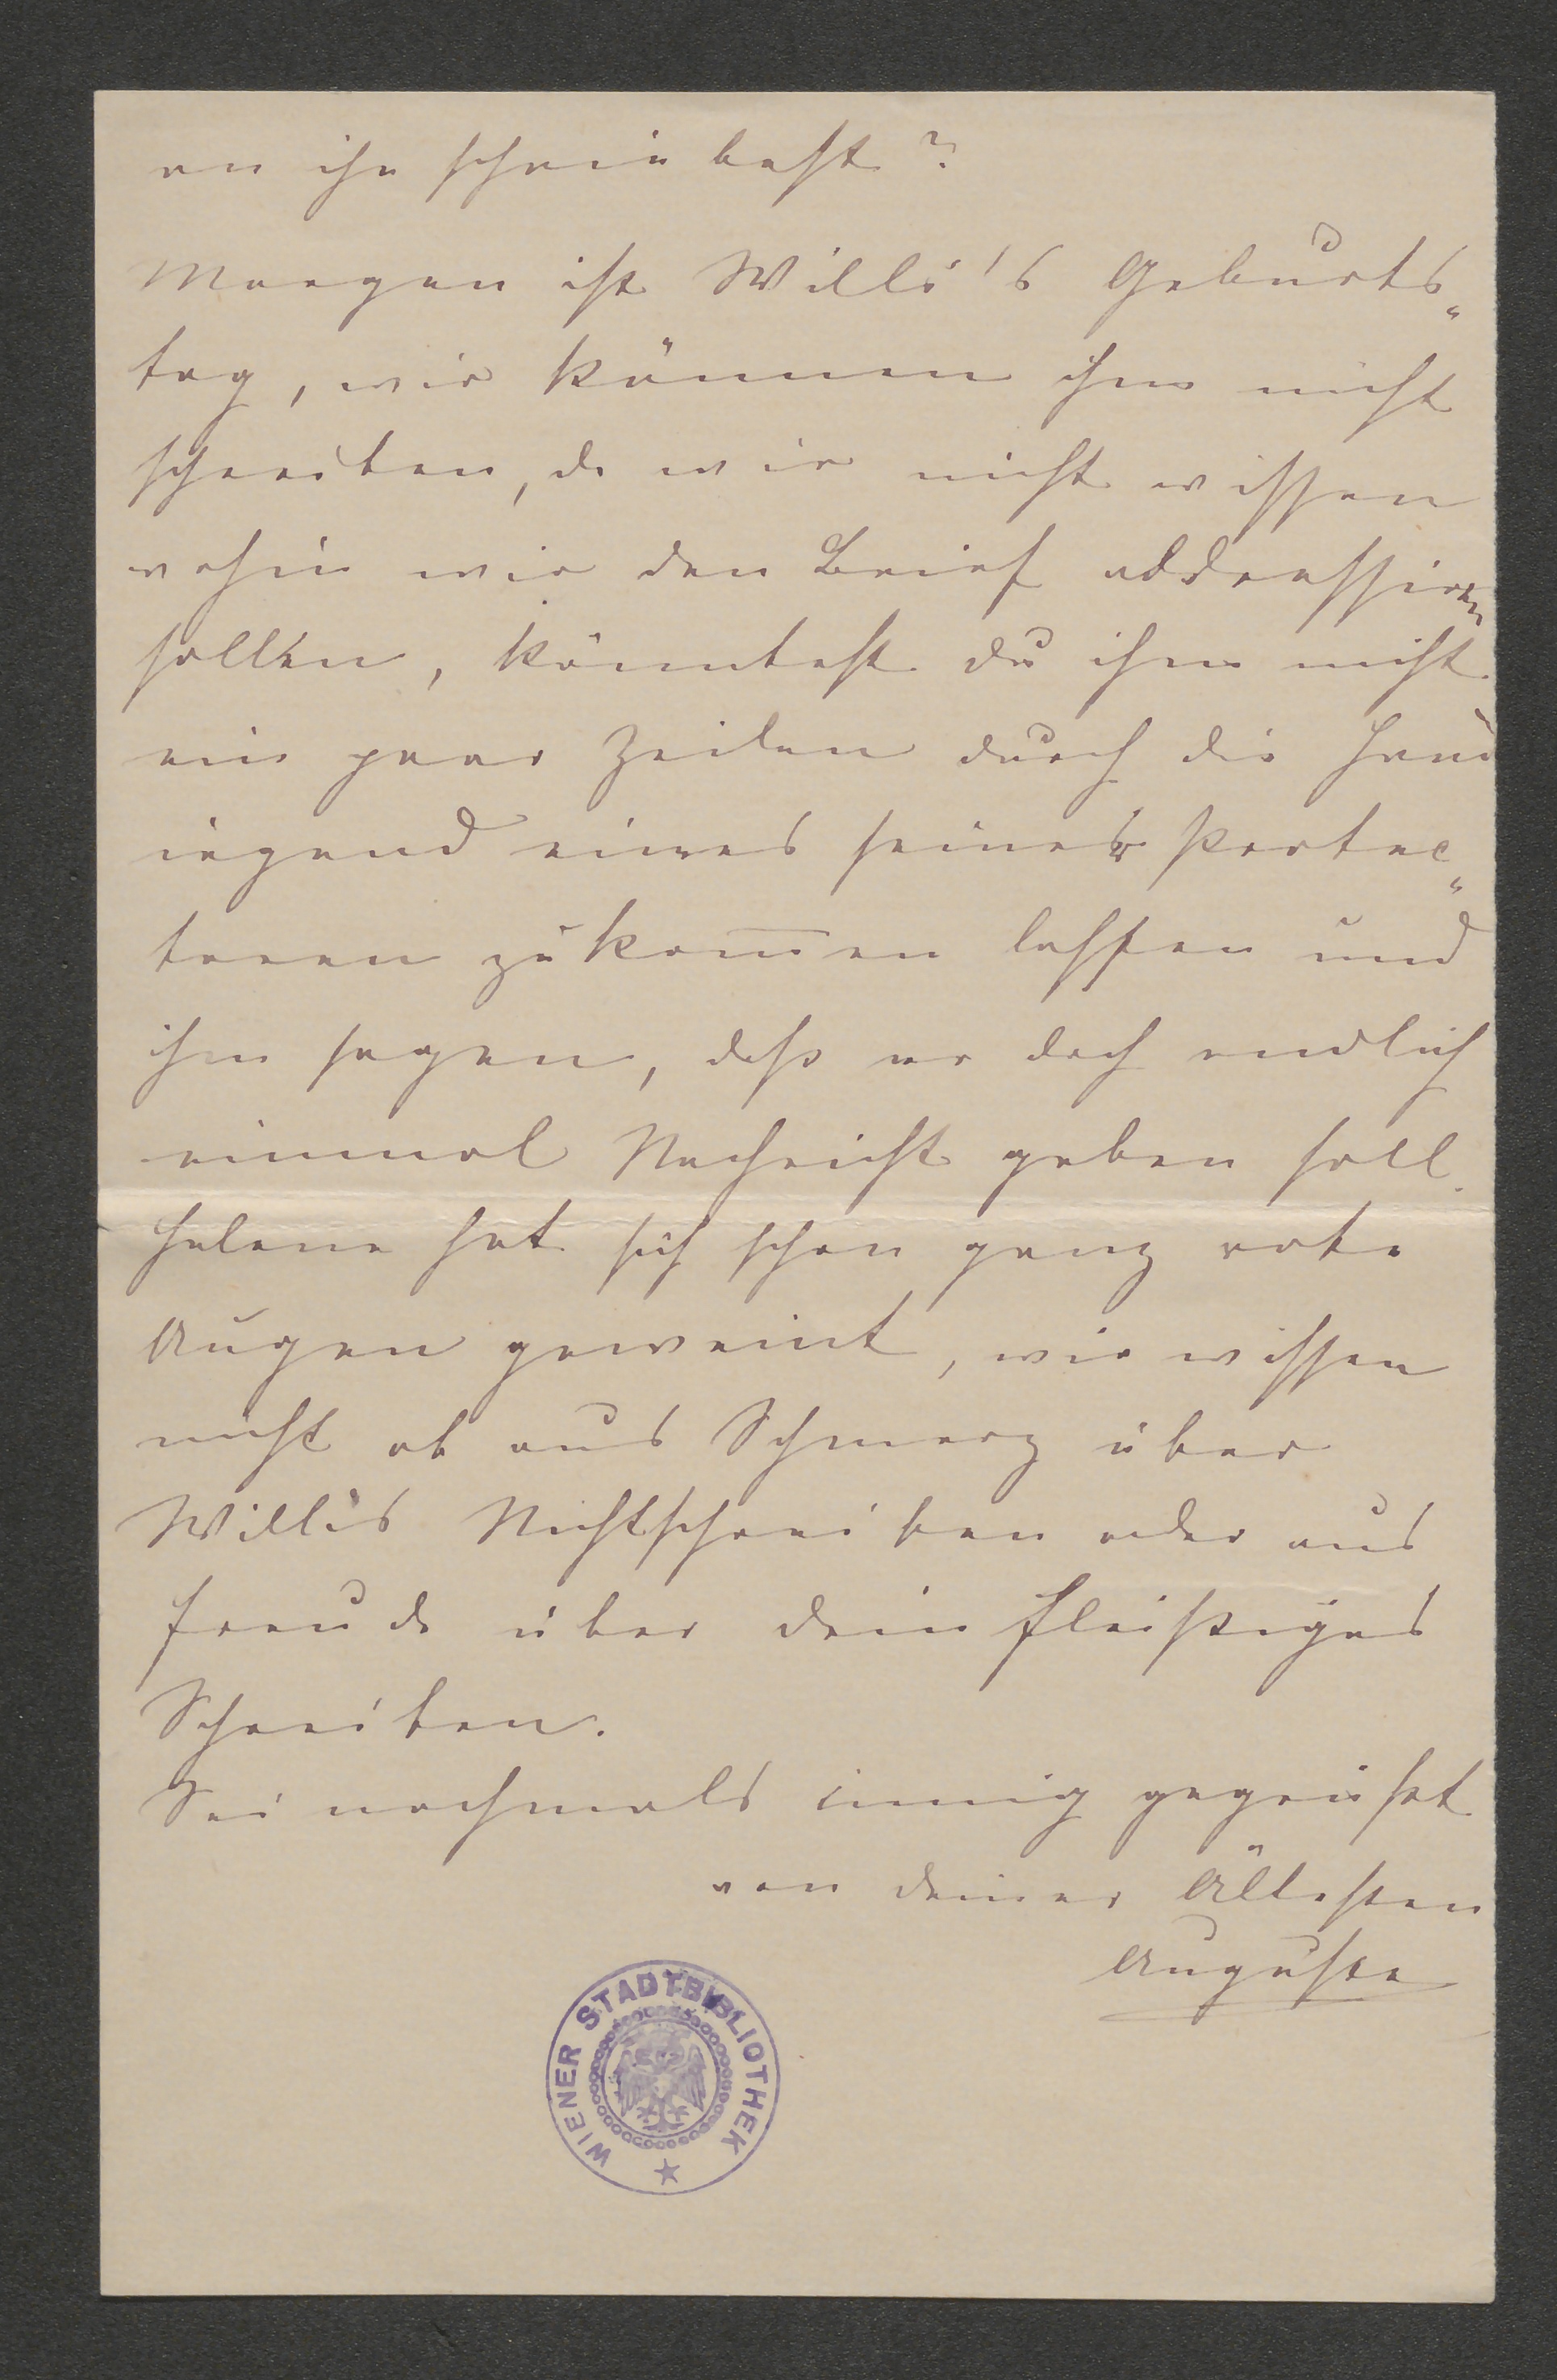 an ihn schriebest?
Morgen ist Willi's Geburts„
tag, wir können ihm nicht
schreiben, da wir nicht wissen
wohin wir den Brief addressiren
sollen, könntest du ihm nicht
ein paar Zeilen durch die Hand
irgend eines seiner Protec„
toren zukom̅en lassen und
ihm sagen, daß er doch endlich
einmal Nachricht geben soll.
Helene hat sich schon ganz rote
Augen geweint, wir wissen
nicht ob aus Schmerz über
Willis Nichtschreiben oder aus
Freude über dein fleißiges
Schreiben.
Sei nochmals innig gegrüßt
von deiner Ältesten
Auguste
WIENER STADTBIBLIOTHEK